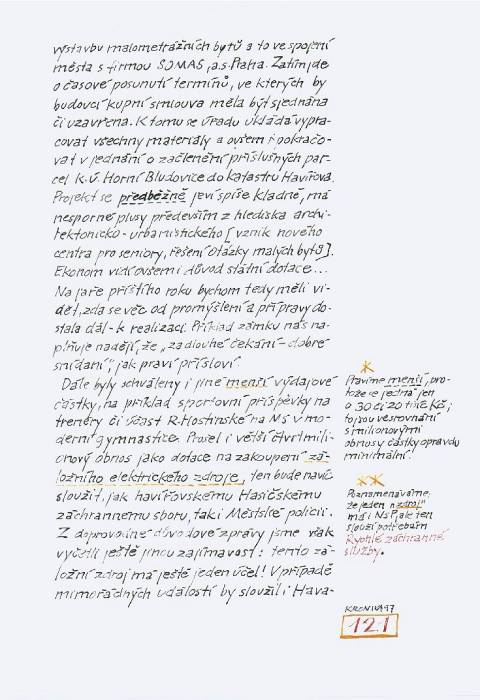 výstavbu malometrážních bytů a to ve spojení
města s firmou SOMAS, a.s. Praha. Zatím jde
o časové posunutí termínů, ve kterých by
budoucí kupní smlouva měla být sjednána
či uzavřena. K tomu se úřadu ukládá vypra-
covat všechny materiály a ovšem i pokračo-
vat v jednání o začlenění příslušných par-
cel k.ú. Horní Bludovice do katastru Havířova.
Projekt se předběžně jeví spíše kladně, má
nesporné plusy především z hlediska archi-
tektonicko-urbanistického [vznik nového
centra pro seniory, řešení otázky malých bytů].
Ekonom vidí ovšem i důvod státní dotace...
Na jaře příštího roku bychom tedy měli vi-
dět, zda se věc od promýšlení a přípravy do-
stala dál - k realizaci. Příklad zámku nás na-
plňuje nadějí, že „za dlouhé čekání - dobré
snídaní", jak praví přísloví.
Dále byly schváleny i jiné menší výdajové
částky, na příklad sportovní příspěvky na
trenéry či účast R. Hostinské na MS v mo-
derní gymnastice. Prošel i větší čtvrtmili-
onový obnos jako dotace na zakoupení zá-
ložního elektrického zdroje, ten bude navíc
sloužit, jak havířovskému Hasičskému
záchrannému sboru, tak i Městské policii.
Z doprovodné důvodové zprávy jsme však
vyčetli ještě jinou zajímavost: tento zá-
ložní zdroj má ještě jeden účel! V případě
mimořádných událostí by sloužil i Hava-
*
Pravíme menší, pro-
tože se jedná jen
o 30 či 20 tisíc Kč;
to jsou ve srovnání
s milionovými
obnosy částky opravdu
minimální!
**
Poznamenáváme,
že jeden „zdroj"
má i NsP, ale ten
slouží potřebám
Rychlé záchranné
služby.
KRONIKA 97
121